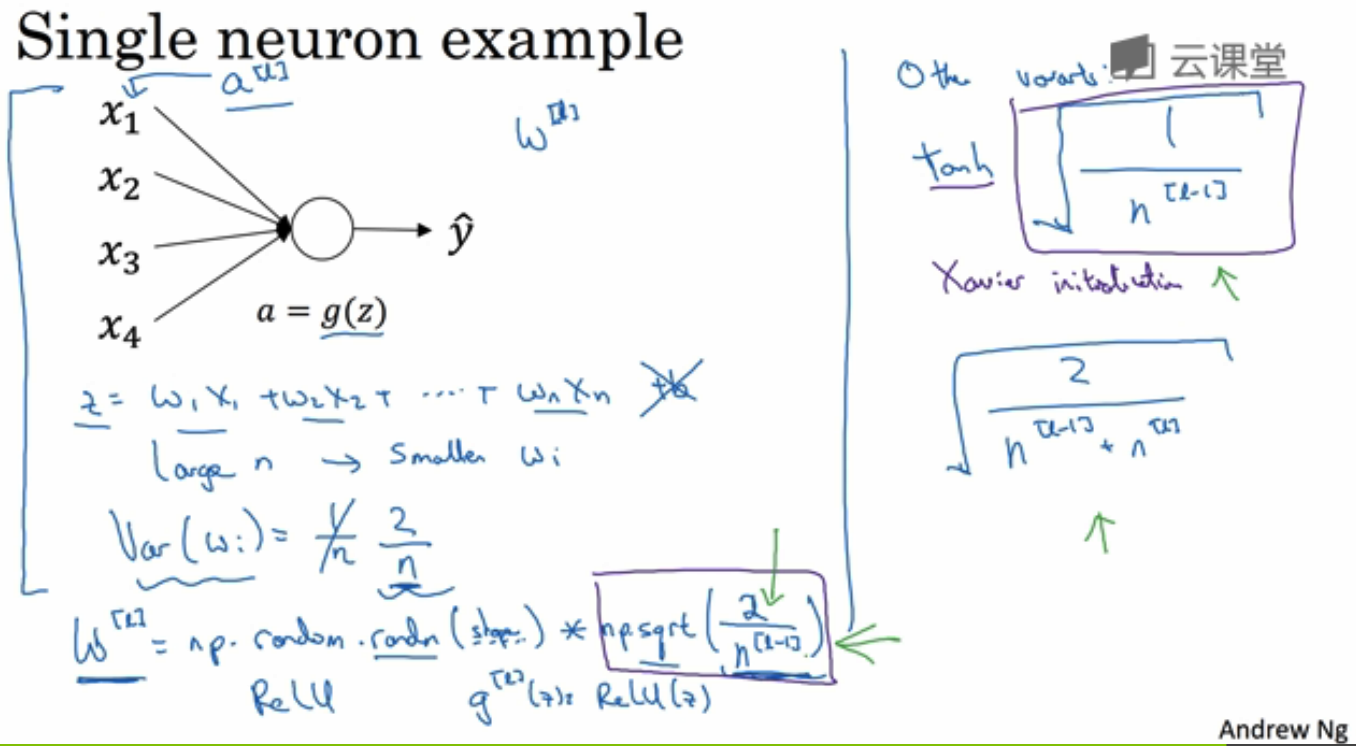 Single neuron example
云课堂
a^[l]
x₁
x₂
x₃
x₄
ŷ
a = g(z)
w^[l]
z = w₁x₁ + w₂x₂ + ... + wₙxₙ +b
Large n → Smaller wᵢ
Var(wᵢ) = 1/n 2/n
W^[l] = np.random.randn(shape) * np.sqrt(2/n^[l-1])
ReLU g^[l](z) = ReLU(z)
Other variants:
tanh √(1/n^[l-1])
Xavier initialization ↑
√(2/(n^[l-1] + n^[l]))
↑
Andrew Ng